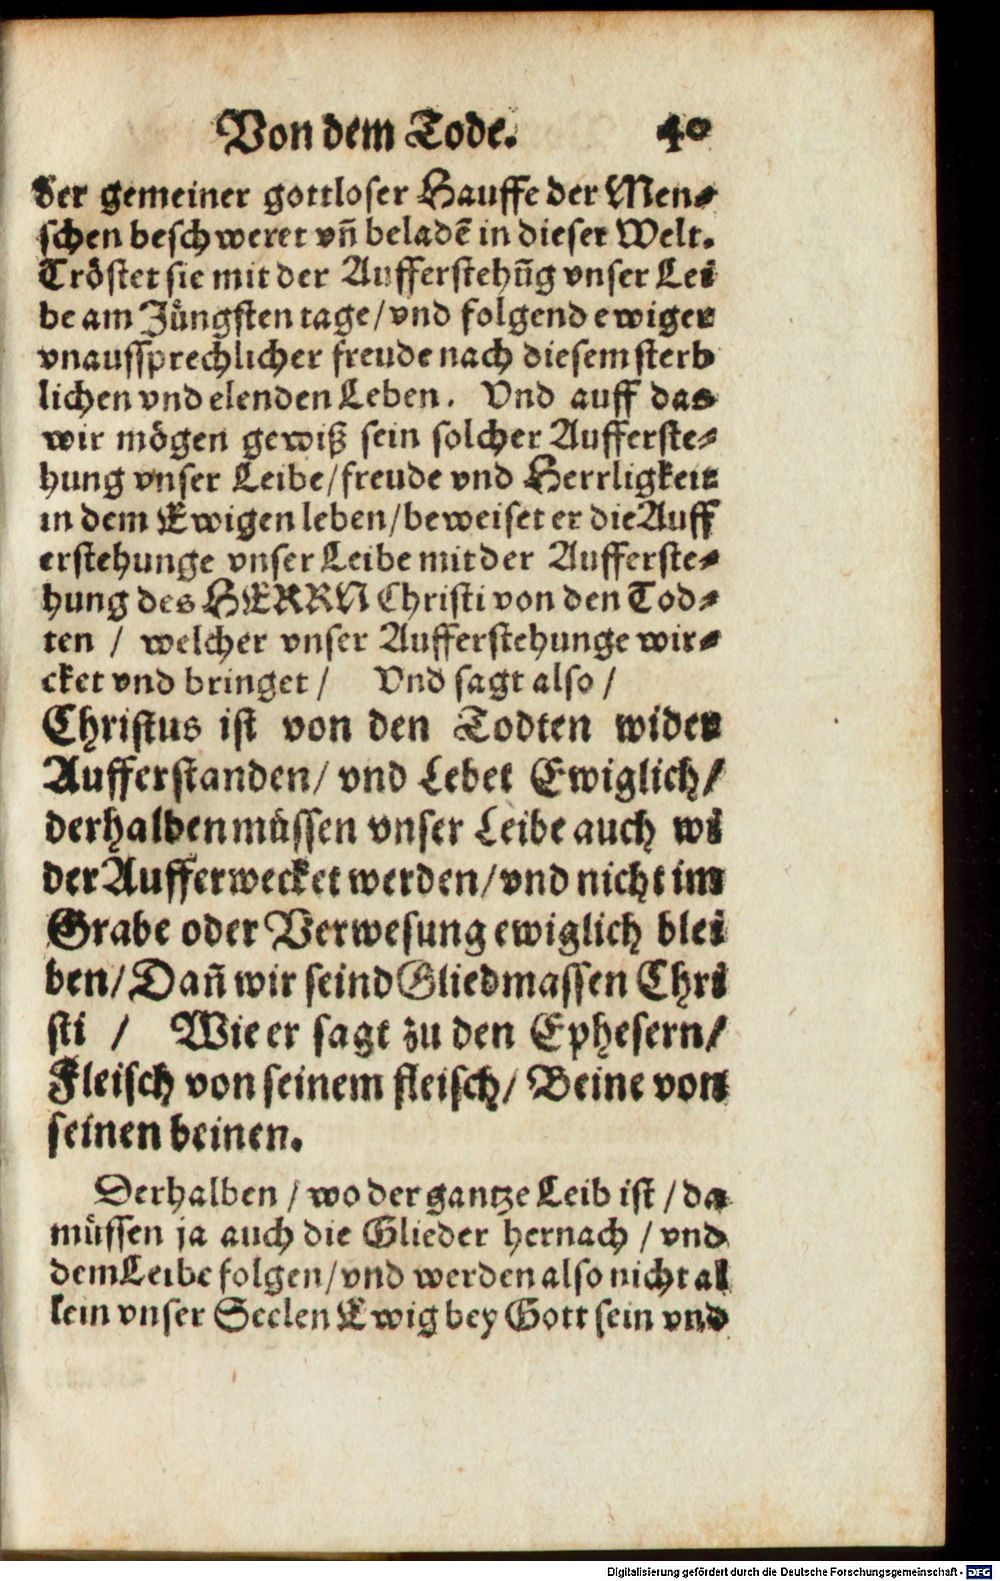 Von dem Tode. 40
der gemeiner gottloser Hauffe der Men⸗
schen beschweret vñ beladē in dieser Welt.
Tröstet sie mit der Aufferstehūg vnser Lei
be am Jüngsten tage/vnd folgend ewiger
vnaussprechlicher freude nach diesem sterb
lichen vnd elenden Leben. Vnd auff das
wir mögen gewiß sein solcher Aufferste⸗
hung vnser Leibe/freude vnd Herrligkeit
in dem Ewigen leben/beweiset er die Auff
erstehunge vnser Leibe mit der Aufferste⸗
hung des HERRN Christi von den Tod⸗
ten / welcher vnser Aufferstehunge wir⸗
cket vnd bringet / Vnd sagt also /
Christus ist von den Todten wider
Aufferstanden/ vnd Lebet Ewiglich/
derhalben müssen vnser Leibe auch wi
der Aufferwecket werden/vnd nicht im
Grabe oder Verwesung ewiglich blei
ben/Dañ wir seind Gliedmassen Chri
sti / Wie er sagt zu den Ephesern/
Fleisch von seinem fleisch/ Beine von
seinen beinen.
Derhalben / wo der gantze Leib ist / da
müssen ja auch die Glieder hernach / vnd
dem Leibe folgen/vnd werden also nicht al
lein vnser Seelen Ewig bey Gott sein vnd
Digitalisierung gefördert durch die Deutsche Forschungsgemeinschaft - DFG